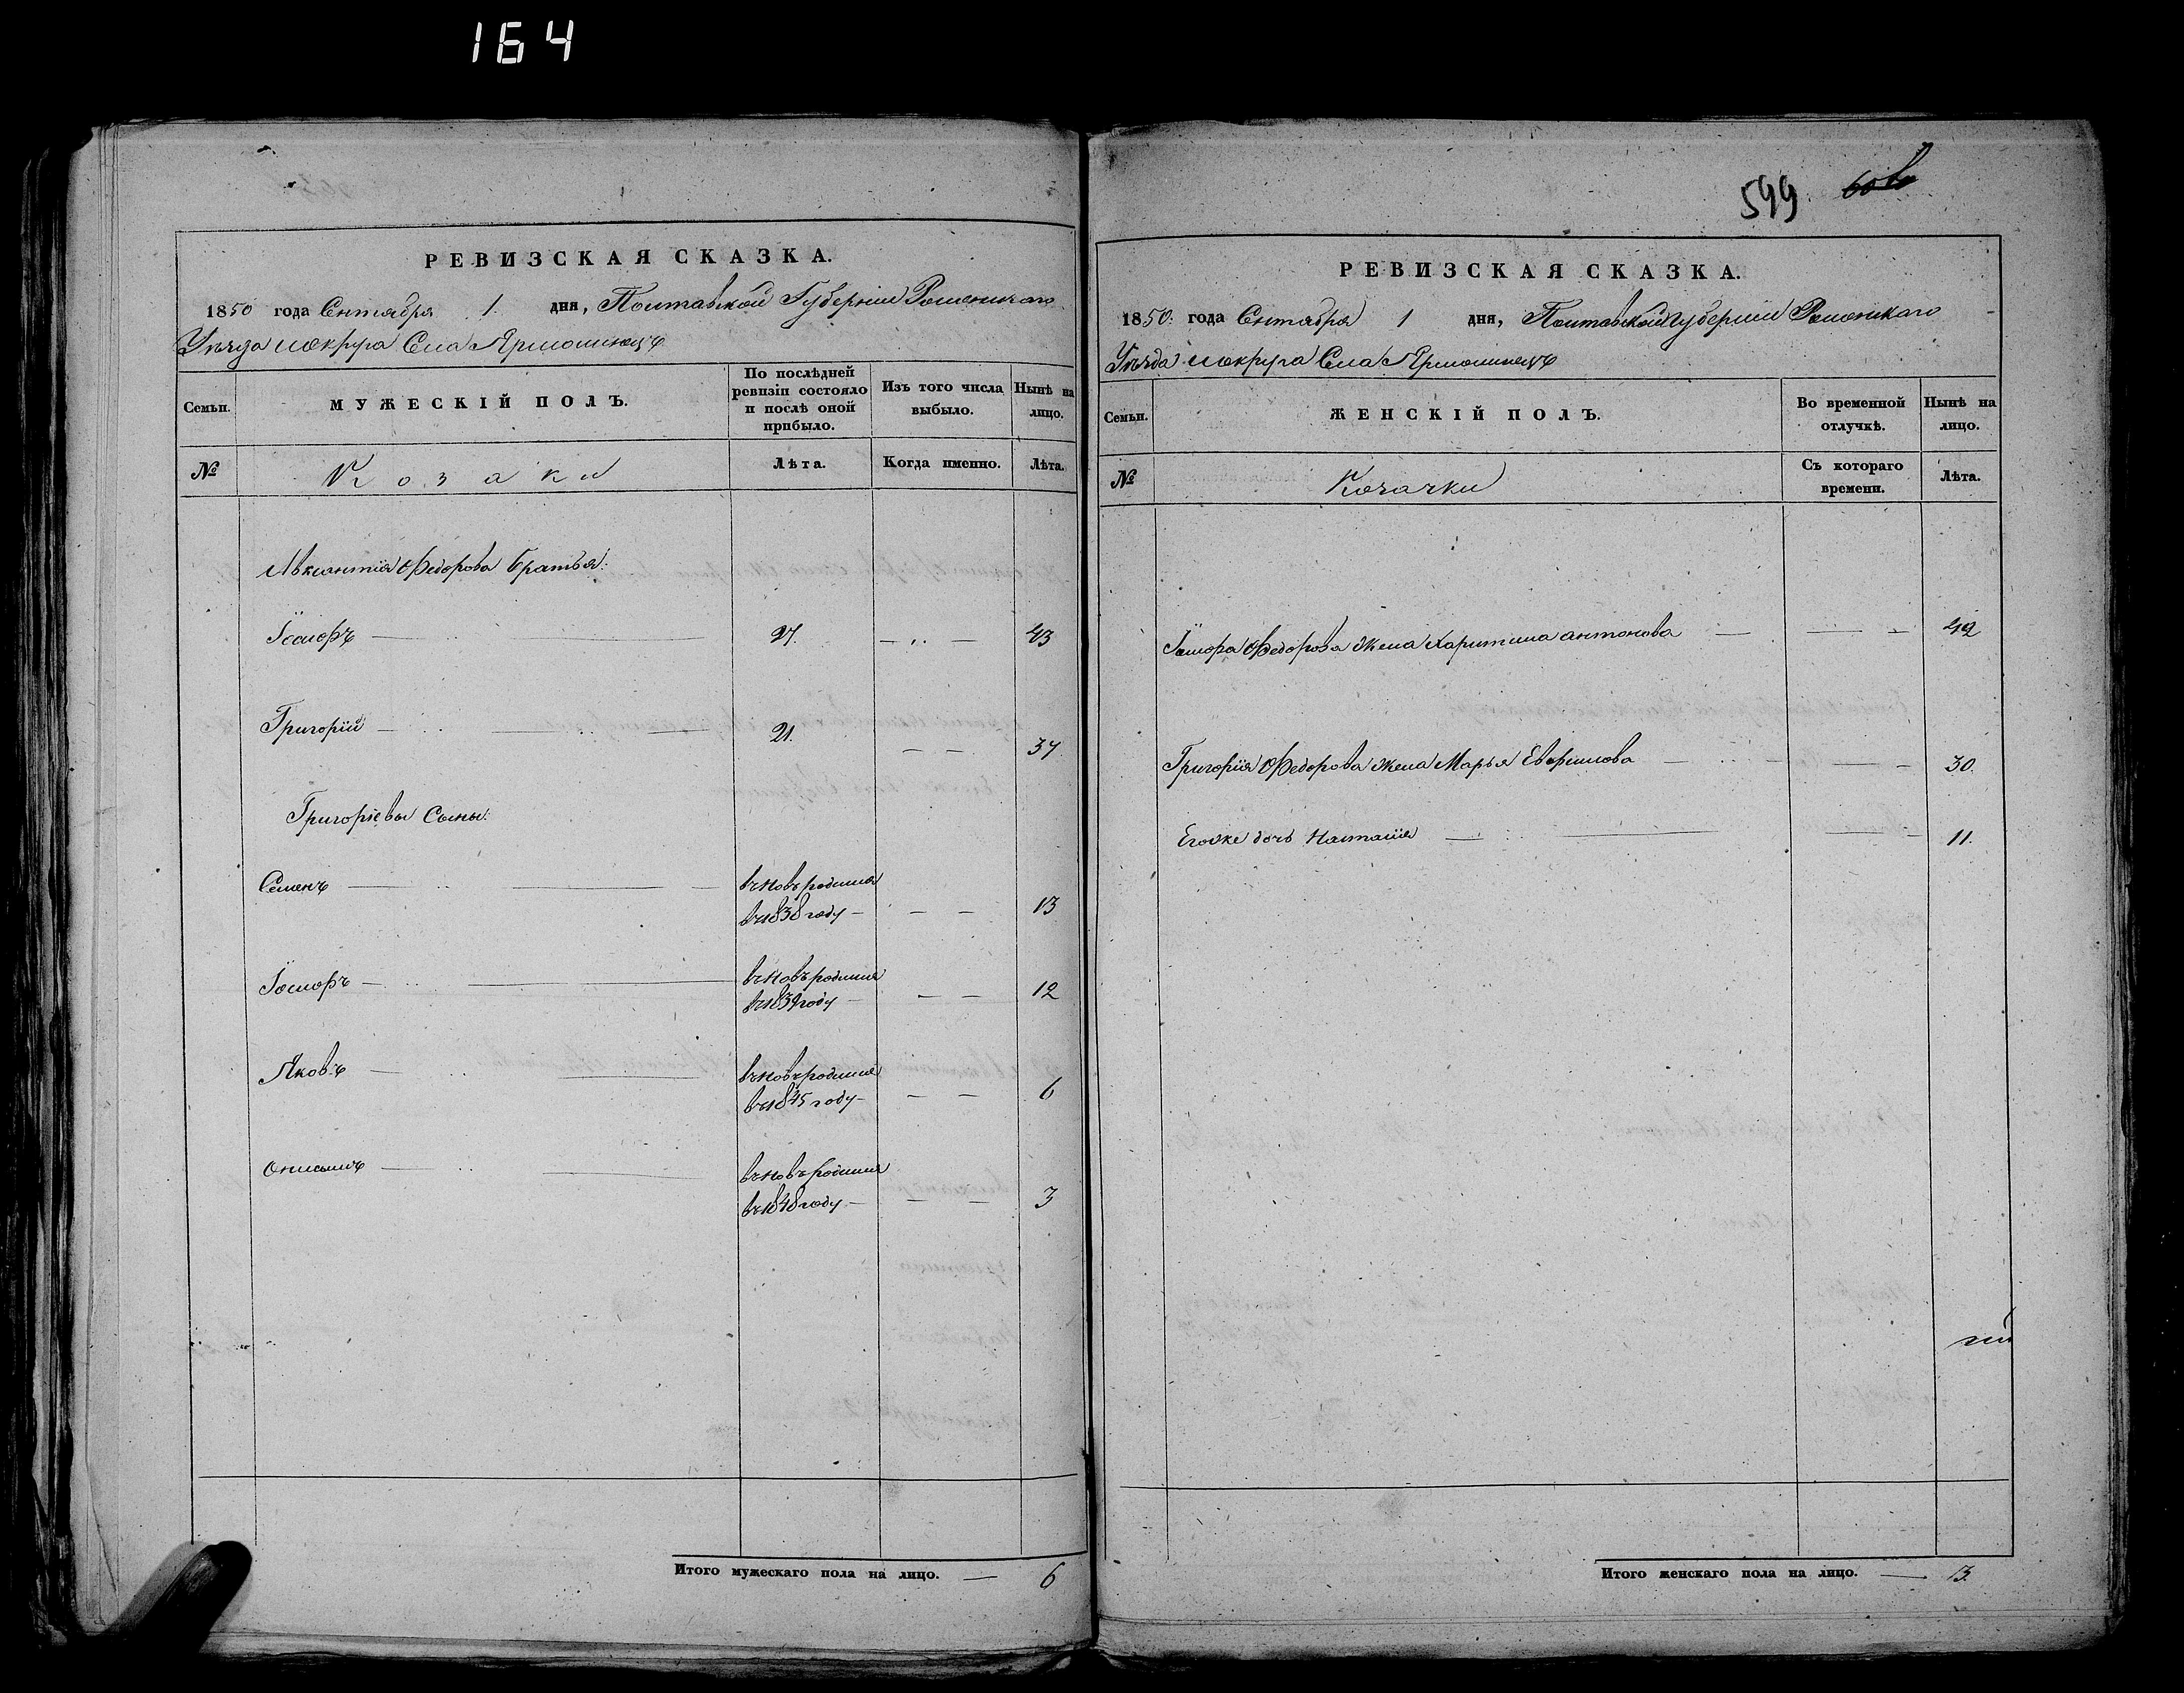 164
РЕВИЗСКАЯ СКАЗКА.
1850 года Сентября 1. дня, Полтавской Губернии Роменскаго
Уѣзда и округа Села Ярмолинецъ
Семьи.
МУЖЕСКІЙ ПОЛЪ.
По послѣдней ревизіи состояло и послѣ оной прибыло.
Изъ того числа выбыло.
Нынѣ на лицо.
№
Козаки
Лѣта.
Когда именно.
Лѣта.
Авксентія Федорова братья:
Іосифъ 27. 43
Григорій 21. 37
Григоріевы Сыны:
Семенъ вновь родился
въ 1838 году 13
Іосифъ вновь родился
въ 1839 году 12
Яковъ вновь родился
въ 1845 году 6
Онисимъ вновь родился
въ 1848 году 3
Итого мужескаго пола на лицо. — 6
599
РЕВИЗСКАЯ СКАЗКА.
1850: года Сентября 1 дня, Полтавской Губернии Роменскаго
Уѣзда и округа Села Ярмолинецъ
Семьи.
ЖЕНСКІЙ ПОЛЪ.
Во временной отлучкѣ.
Нынѣ на лицо.
№
Козачки
Съ котораго времени.
Лѣта.
Іосифа Федорова жена Харитина антонова 42
Григорія Федорова жена Марья Евфимова 30.
Егоже дочь Настасія 11.
Итого женскаго пола на лицо. — 3.